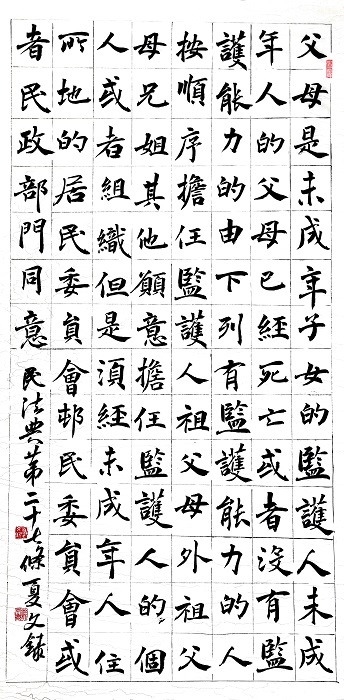 父母是未成年子女的監護人未成
年人的父母已經死亡或者沒有監
護能力的由下列有監護能力的人
按順序擔任監護人祖父母外祖父
母兄姐其他願意擔任監護人的個
人或者組織但是須經未成年人住
所地的居民委員會邨民委員會或
者民政部門同意
民法典第二十七條夏文錄